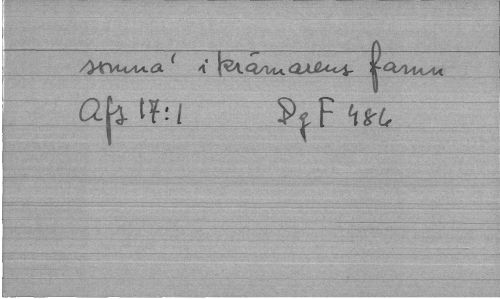 somna' i krämarens famn
Afz 17:1 Dg F 486